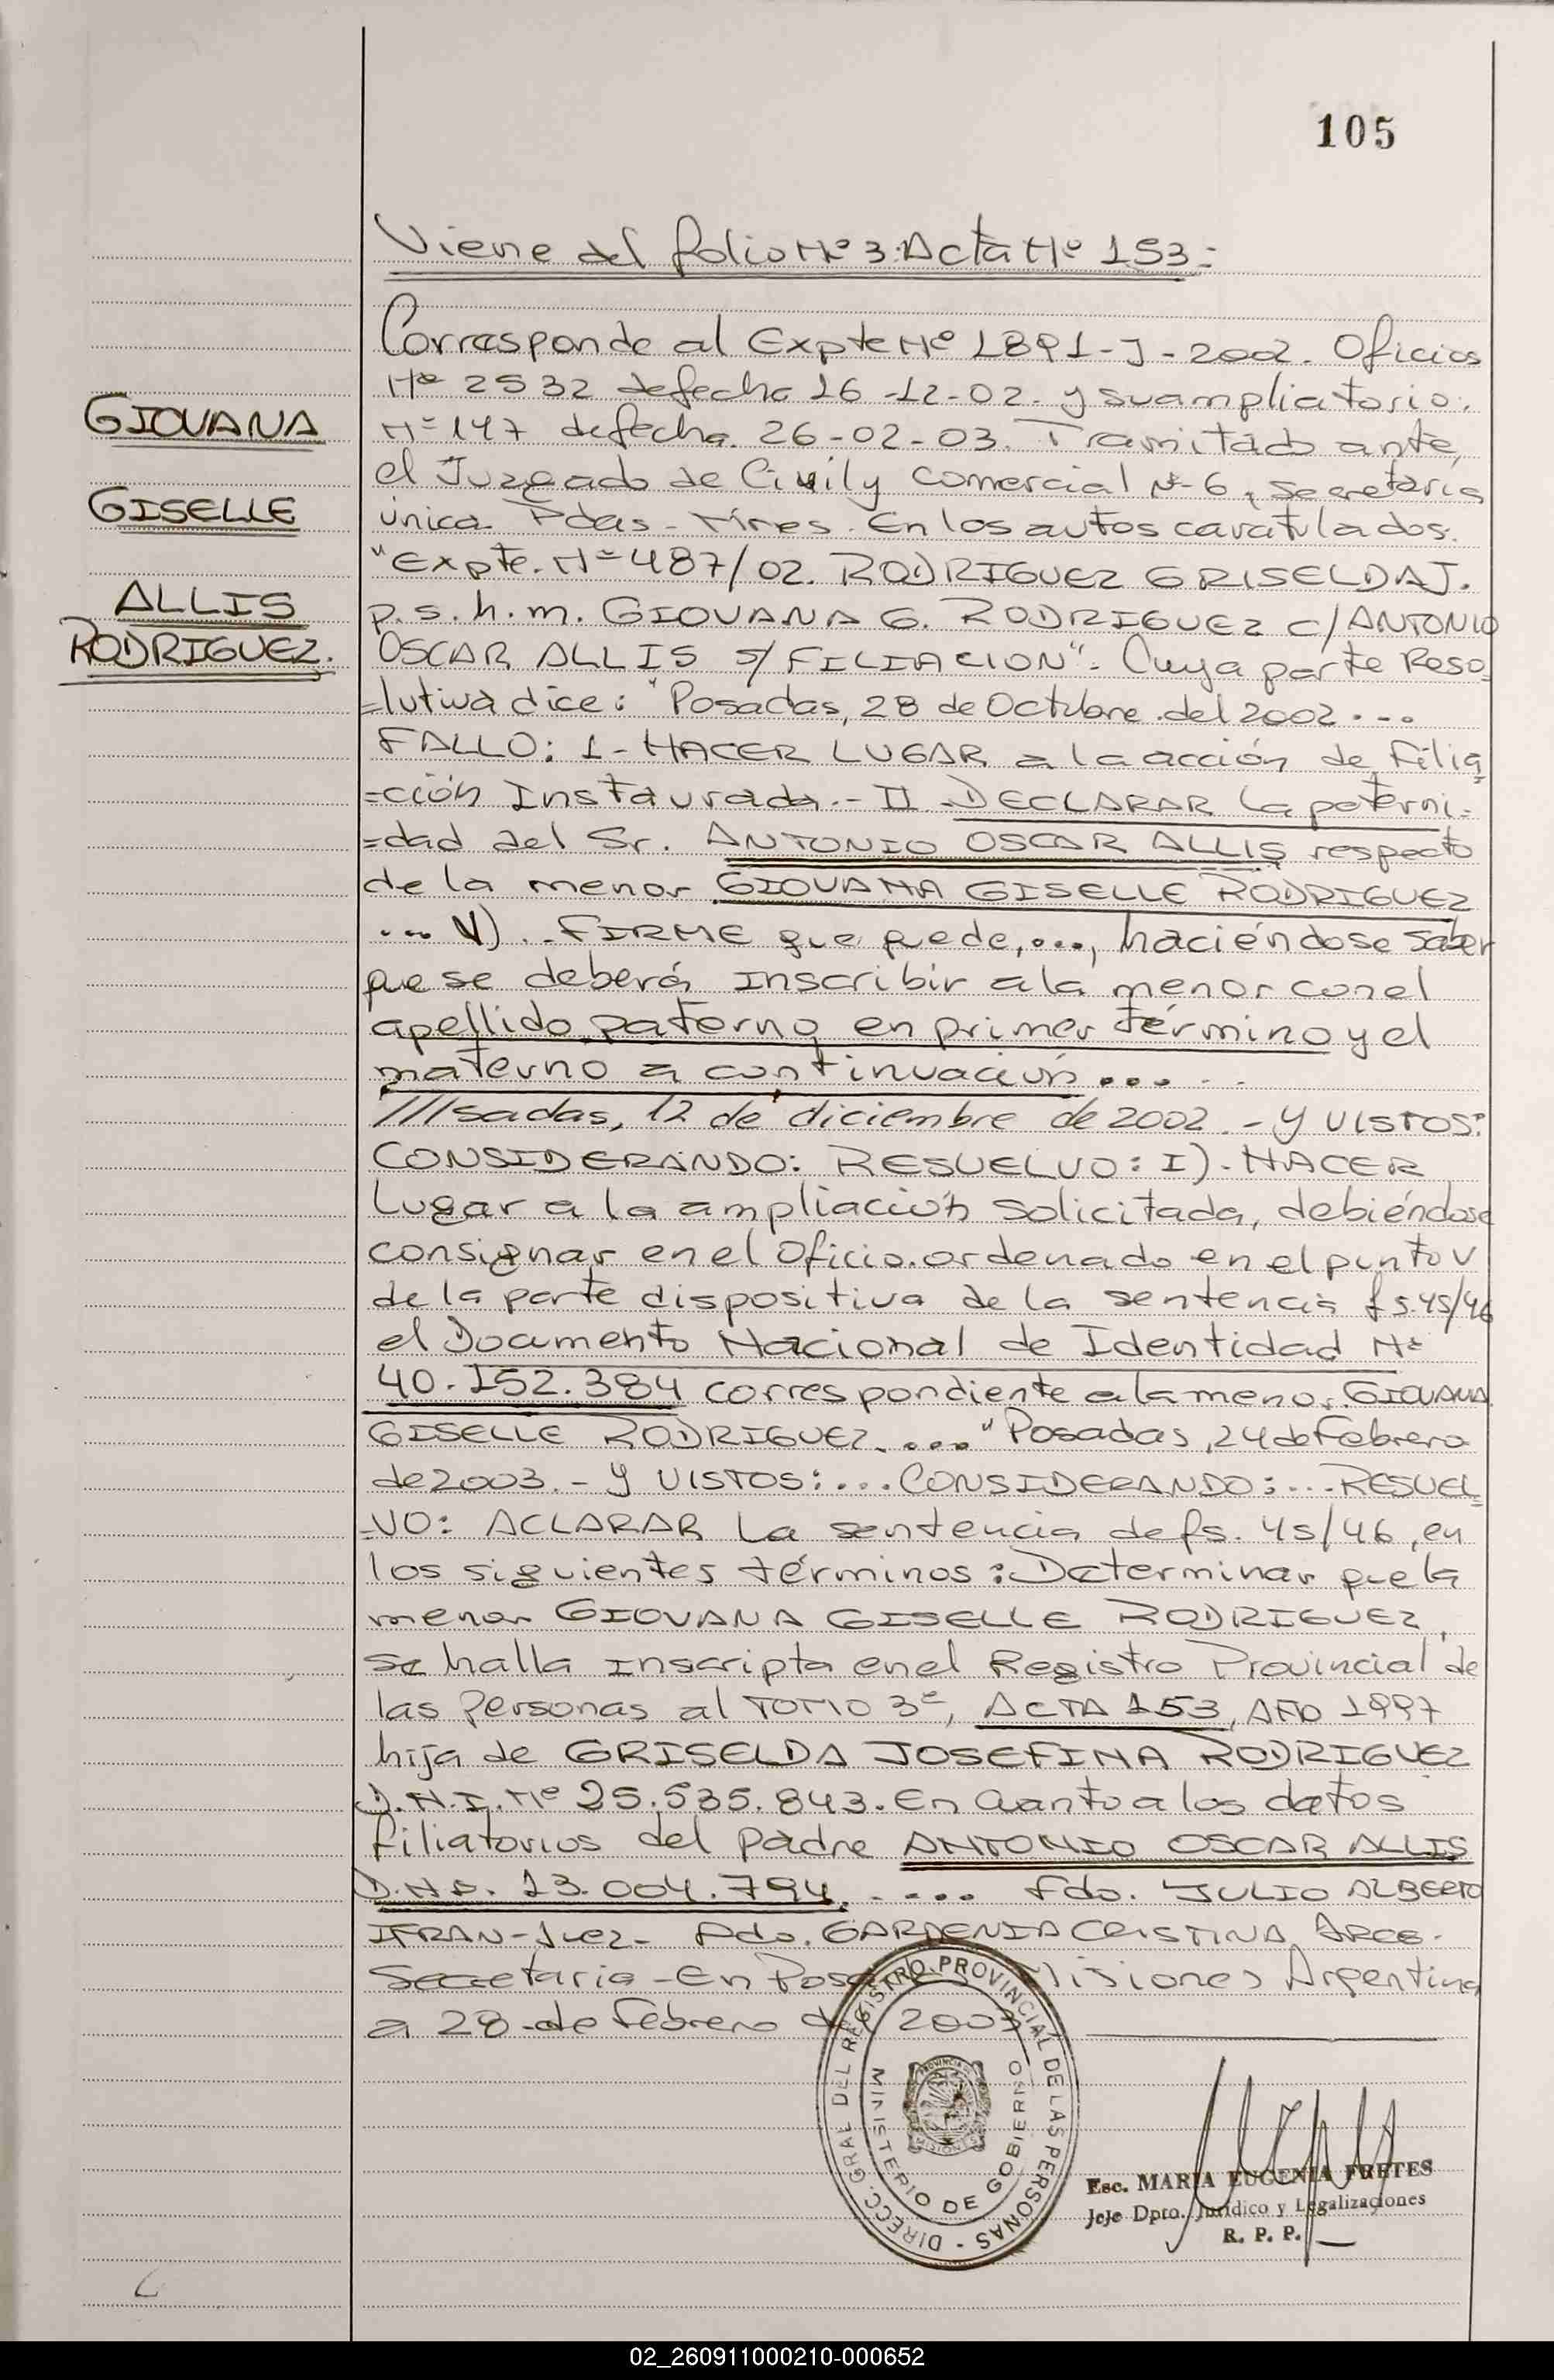 105
Viene del folio Nº 3. Acta Nº 153:
Corresponde al Expte Nº 1891-J-2002. Oficios
Nº 2532 de fecha 16-12-02. y su ampliatorio.
GIOVANA
Nº 147 de fecha 26-02-03. Tramitado ante,
el Juzgado de Civil y Comercial Nº 6, Secretaria
GISELLE
única. Pdas - Mnes. En los autos caratulados:
"Expte. Nº 487/02. RODRIGUEZ GRISELDA J.
ALLIS
p.s.h.m. GIOVANA G. RODRIGUEZ c/ ANTONIO
RODRIGUEZ.
OSCAR ALLIS s/ FILIACION". Cuya parte Reso
=lutiva dice: "Posadas, 28 de Octubre del 2002...
FALLO: 1- HACER LUGAR a la acción de Filia
=ción Instaurada.- II DECLARAR la paterni=
=dad del Sr. ANTONIO OSCAR ALLIS respecto
de la menor GIOVANA GISELLE RODRIGUEZ
... V)... FIRME que quede,..., haciéndose saber
que se deberá inscribir a la menor con el
apellido paterno en primer término y el
materno a continuación....
///sadas, 12 de diciembre de 2002.- Y VISTOS:
CONSIDERANDO: RESUELVO: I).- HACER
Lugar a la ampliación solicitada, debiéndose
consignar en el Oficio ordenado en el punto V
de la parte dispositiva de la sentencia fs. 45/46
el Documento Nacional de Identidad Nº
40.152.384 correspondiente a la menor GIOVANA
GISELLE RODRIGUEZ.... "Posadas, 24 de Febrero
de 2003.- Y VISTOS:... CONSIDERANDO:... RESUEL
=VO: ACLARAR la sentencia de fs. 45/46, en
los siguientes términos: Determinar que la
menor GIOVANA GISELLE RODRIGUEZ,
se halla inscripta en el Registro Provincial de
las Personas al TOMO 3º, ACTA 153, AÑO 1997
hija de GRISELDA JOSEFINA RODRIGUEZ
D.N.I. Nº 25.535.843. En cuanto a los datos
filiatorios del padre ANTONIO OSCAR ALLIS
D.N.I. 13.004.794..... Fdo. JULIO ALBERTO
IFRAN - Juez - Fdo. GARDENIA CRISTINA ARCE.
Secretaria - En Posadas Misiones Argentina
a 28 de febrero de 2003
DIRECC. GRAL DEL REGISTRO PROVINCIAL DE LAS PERSONAS -
MINISTERIO DE GOBIERNO
PROVINCIA
MISIONES
Esc. MARIA EUGENIA FRETES
Jefe Dpto. Jurídico y Legalizaciones
R. P. P.
02_260911000210-000652